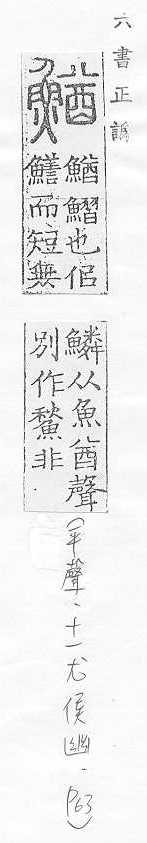 六書正譌
鰌
鰌鰼也佀
鱔而短無
鱗从魚酋聲
別作非.
(平聲、十一尤侯幽.P63)